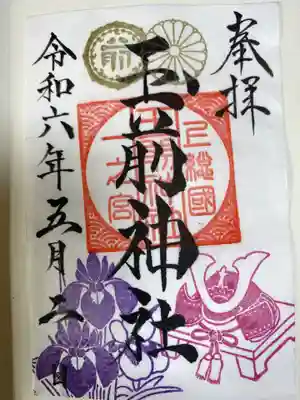 奉拝
前
上総國
一之宮
玉前神社
令和六年五月二日